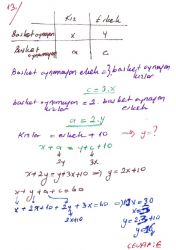 13)
Kız Erkek
Basket oynayan x y
Basket oynamayan a c
Basket oynamayan erkek = 3. basket oynayan kızlar
c = 3.x
basket oynamayan = 2. basket oynayan
kızlar erkek
a = 2.y
Kızlar = erkek + 10 ⇒ y = ?
x + a = y + c + 10
2y 3x
x + 2y = y + 3x + 10 ⇒ y = 2x + 10
x + y + a + c = 60
x + 2x + 10 + 2y + 3x = 60
2x+10
CEVAP: E